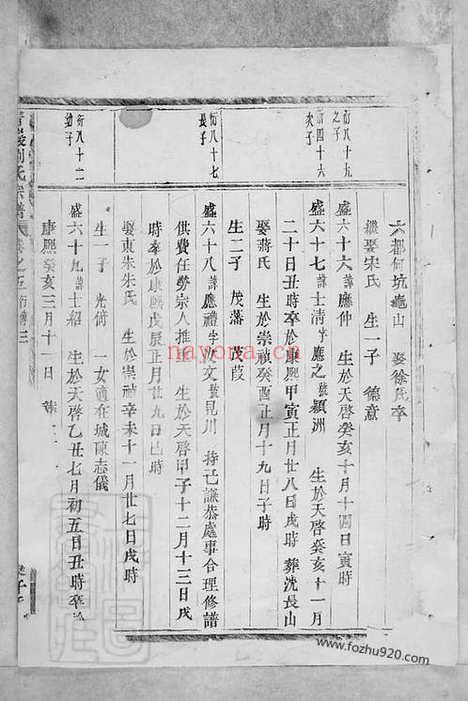 六都何坑龜山　娶徐氏卒
繼娶宋氏　生一子　德意
衍八十九之子
盛六十六諱應仲　生於天啓癸亥十月十四日寅時
衍四十六次子
盛六十七諱士清字應之號穎洲　生於天啓癸亥十一月
二十日丑時卒於康熙甲寅正月廿八日戌時　葬沈長山
娶蔣氏　生於崇禎癸酉正月十九日子時
生二子　茂藩　茂葭
衍八十七長子
盛六十八諱應禮字文號見川　持己謙恭處事合理修譜
供費任勞宗人推正　生於天啓甲子十二月十三日戌
時卒於康熙戊辰正月廿九日巳時
娶東朱朱氏　生於崇禎辛未十一月廿七日戌時
生一子　光脩　一女適在城陳志儀
衍八十二幼子
盛六十九諱士紹　生於天啓乙丑七月初五日丑時卒於
康熙癸亥三月十一日　葬
劉氏宗譜　卷之五
nayona.cn
www.fozhu920.com